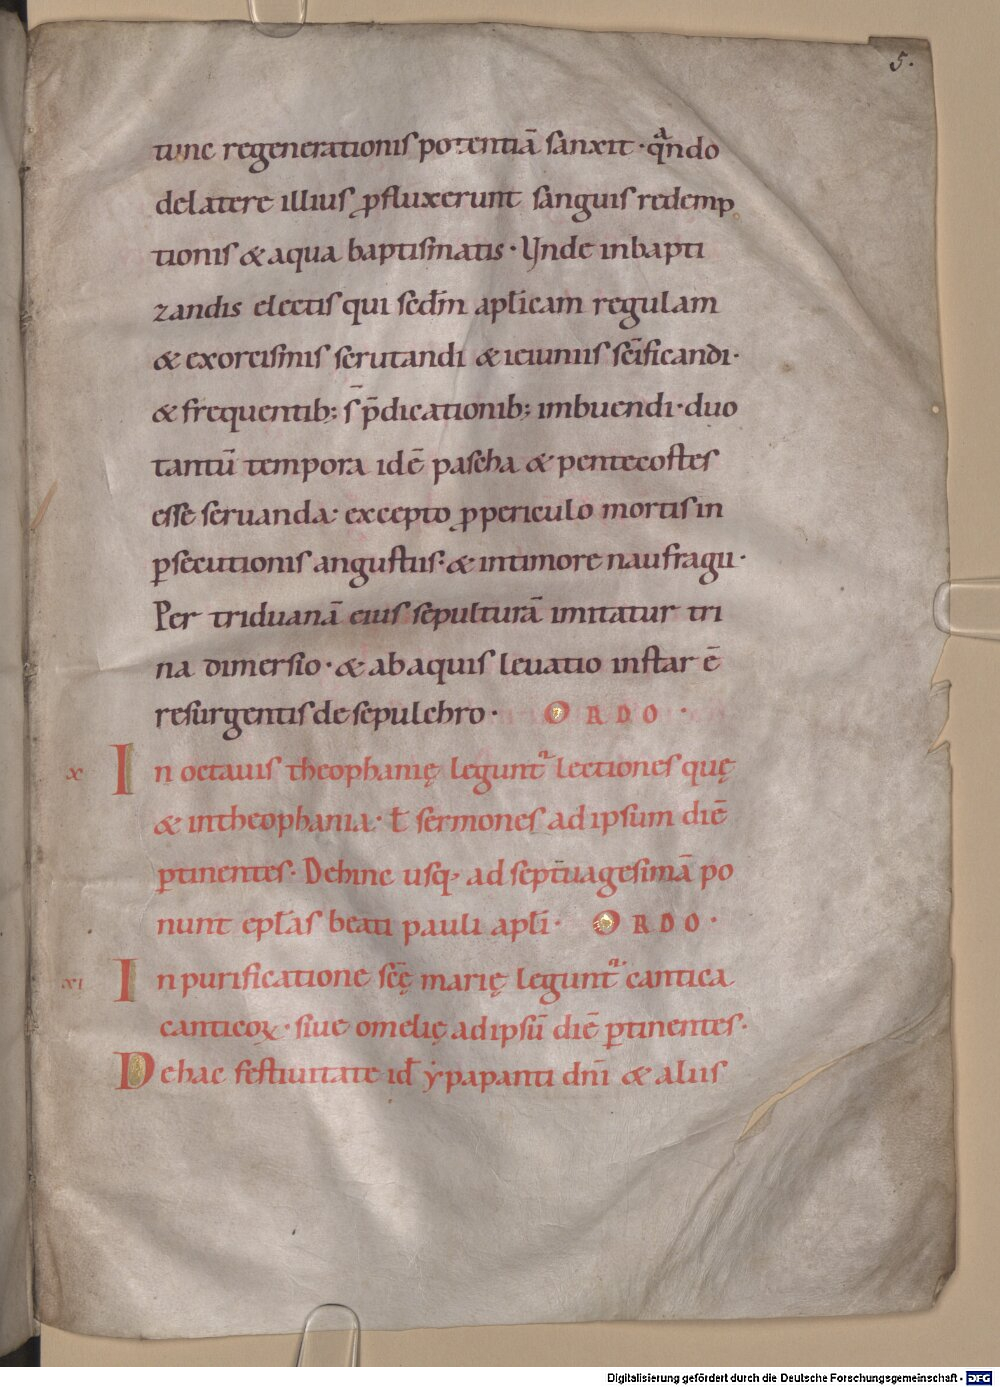 5.
tunc regenerationis potentiā sanxit · qᷓndo
delatere illius ꝓfluxerunt sanguis redemp
tionis & aqua baptismatis · Unde inbapti
zandis electis qui scd̄m apl̄icam regulam
& exorcismis scrutandi & ieiuniis sc̄ificandi ·
& frequentib; s̄ p̄dicationib; imbuendi · duo
tantū tempora idē pascha & pentecostes
esse seruanda · excepto ꝓpericulo mortis in
ꝑsecutionis angustiis · & intimore naufragii ·
Per triduanā eius sepulturā imitatur tri
na dimersio · & abaquis leuatio instar ē
resurgentis de sepulchro · ORDO ·
x In octauis theophanię leguntᷓ lectiones quę
& intheophania · ł sermones ad ipsum diē
ꝑtinentes · Dehinc usq; ad septuagesimā po
nunt epl̄as beati pauli apl̄i · ORDO ·
xi In purificatione scę̄ marię leguntᷓ cantica
canticoꝝ · siue omelię ad ipsū diē ꝑtinentes ·
Dehac festiuitate id̄ ẏpapanti dn̄i & aliis
Digitalisierung gefördert durch die Deutsche Forschungsgemeinschaft - DFG